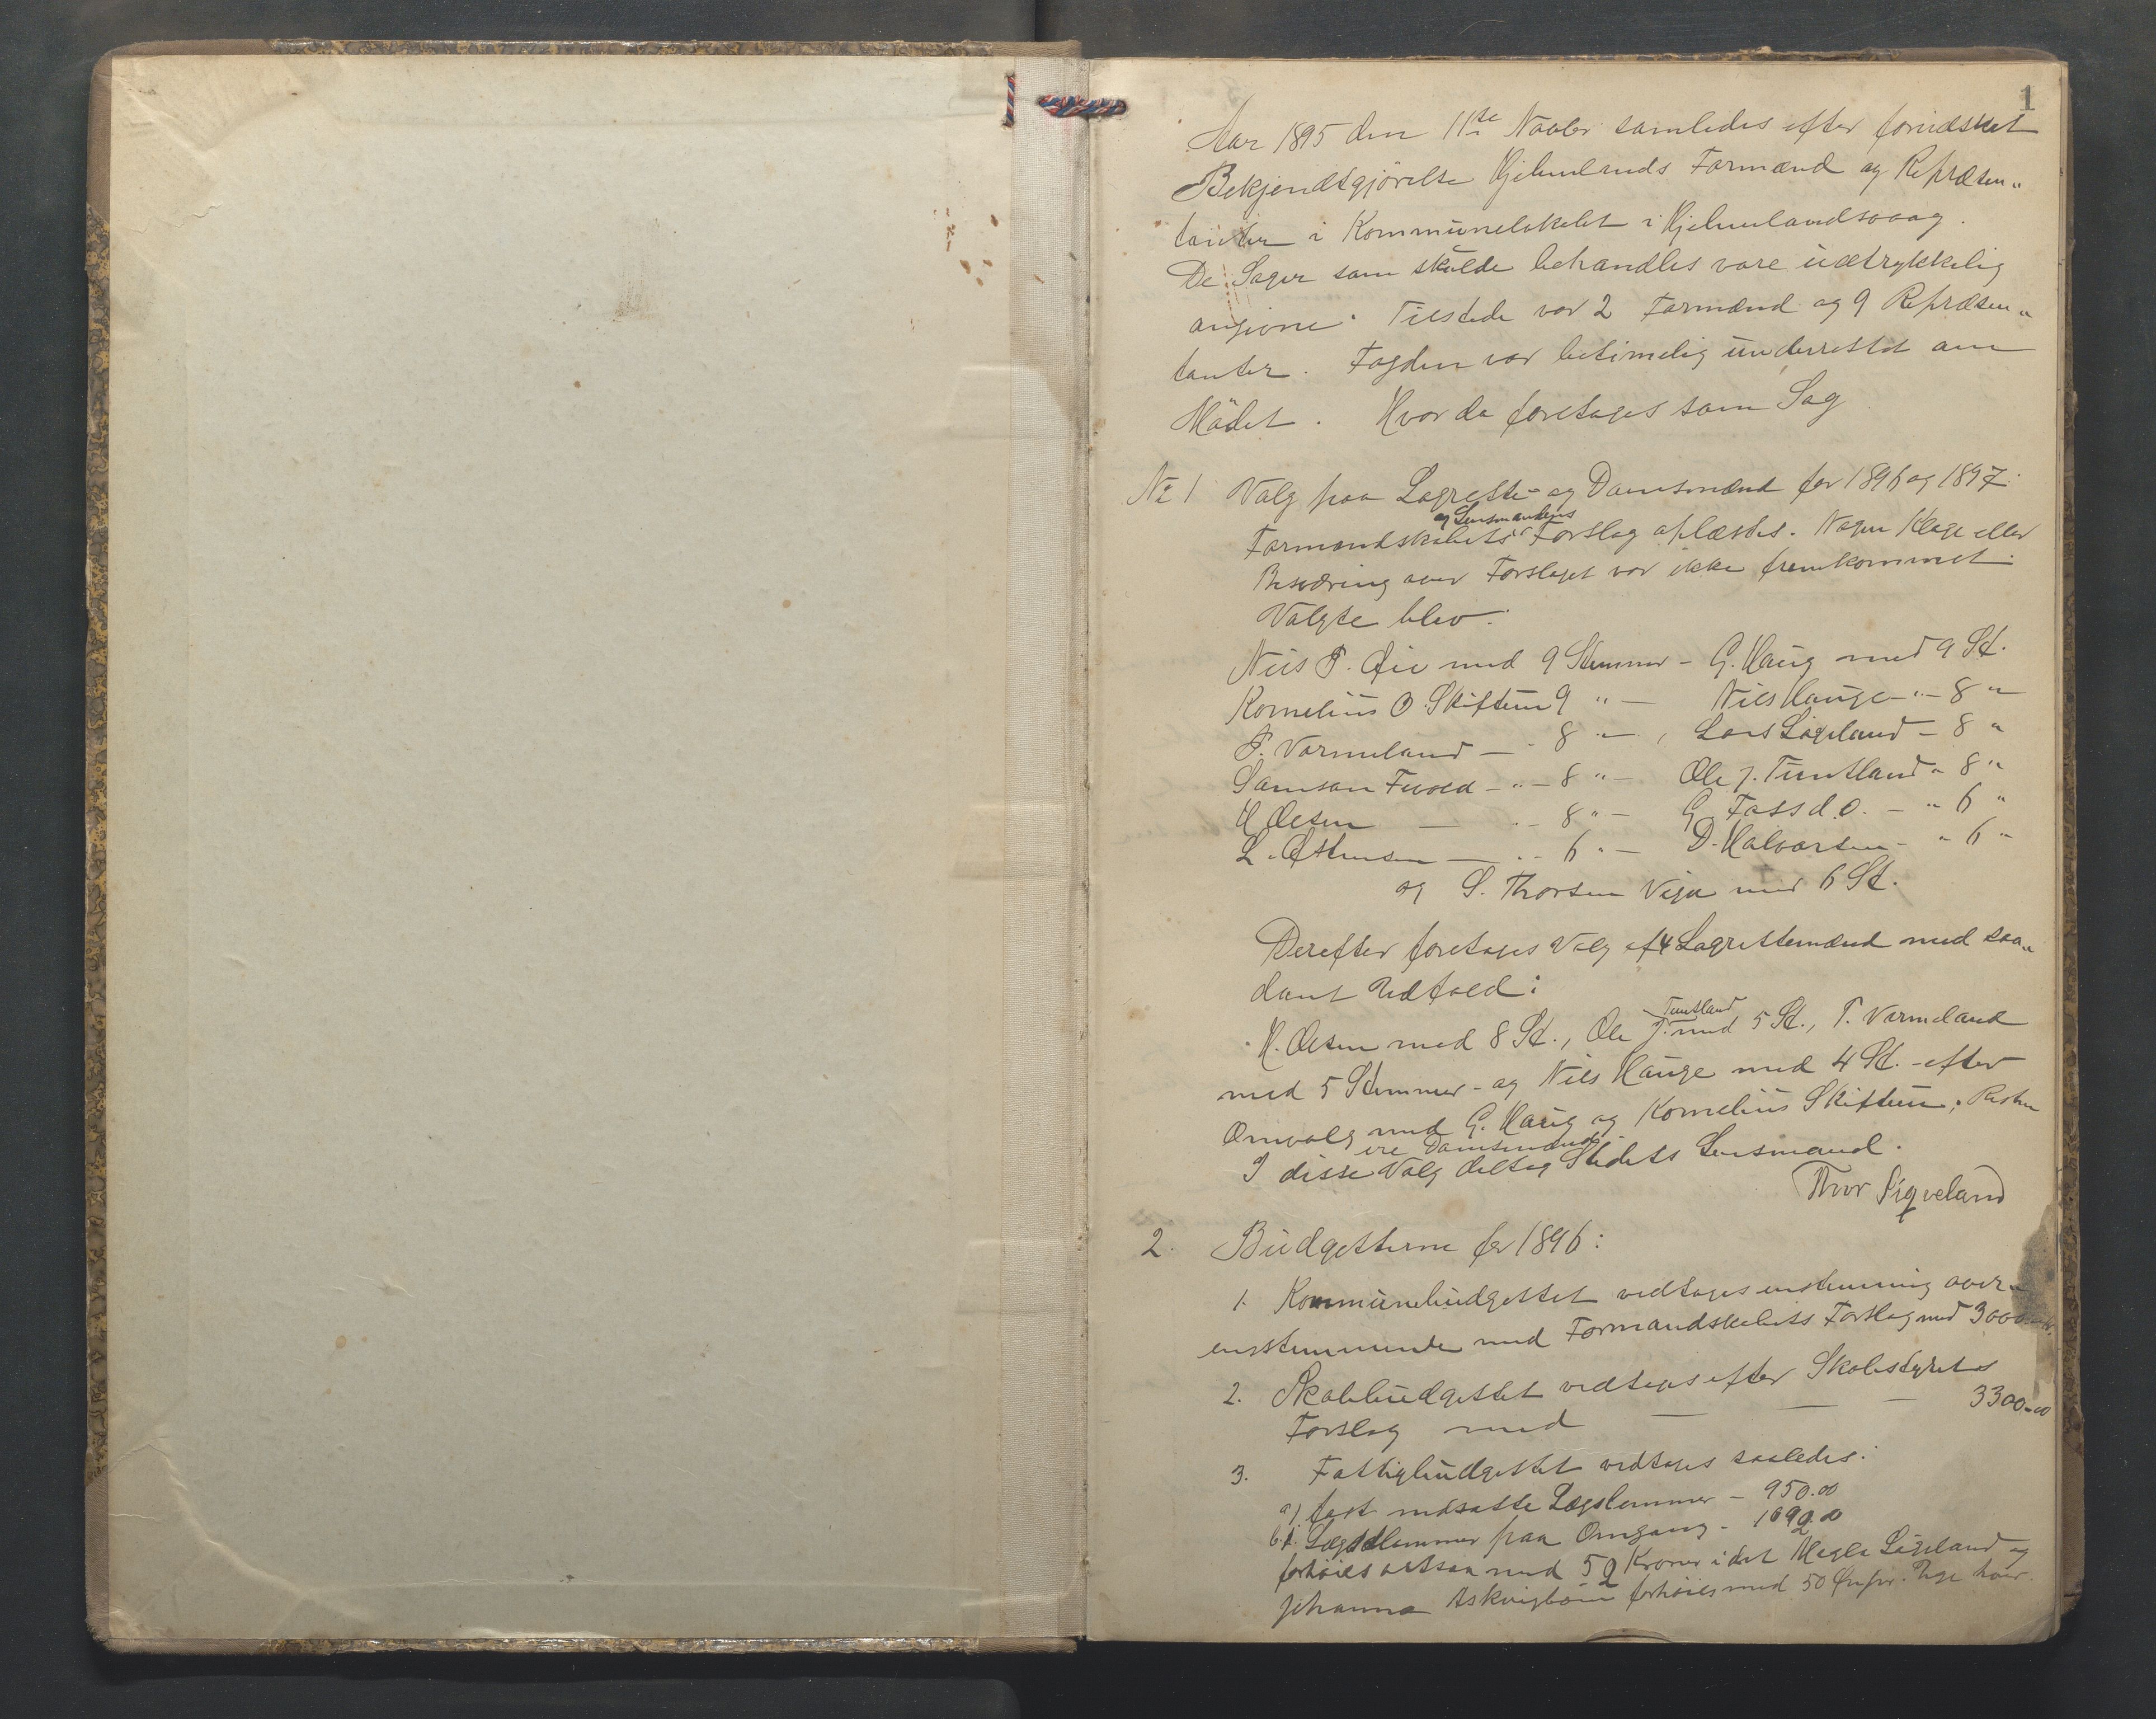 1
Aar 1895 den 11te Novbr samledes efter forudskket
Bekjendtgjørelse Hjelmelands Formænd og Repræsen„
tanter i Kommunelokalet i Hjelmelandsvaag.
De Sager som skulde behandles vare udtrykkelig
angivne. Tilstede var 2 Formænd og 9 Repræsen„
tanter. Fogden var betimelig underrettet om
Mødet. Hvor da foretages som Sag
No 1 Valg paa Lagrette- og Domsmænd for 1896 og 1897.
og Lensmandens
Formandskabets Forslag oplæstes. Nogen Klage eller
Besværing over Forslaget var ikke fremkommet.
Valgte blev:
Niels P. Øie med 9 Stemmer - G. Haug med 9 St.
Kornelius O. Skiftun 9 " — Nils Hauge - " - 8 "
P. Vormeland — " 8 " — , Lars Ligeland - 8 "
Samson Tvoed - " - 8 " — Ole J. Tuntland " 8 "
H Olsen — " - 8 " — G. Fossd. O. - " 6 "
L. Østensen — " - 6 " — D. Halvorsen - " 6 "
og S. Thorsen Viga med 6 St.
Derefter foretages Valg af 4 Lagrettemænd med saa„
dant Udfald:
Tuntland
H. Olsen med 8 St., Ole J. med 5 St., P. Vormeland
med 5 Stemmer - og Nils Hauge med 4 St. - efter
Omvalg med G. Haug og Kornelius Skiftun. Resten
ere Domsmænd.
I disse Valg deltog Stedets Lensmand.
Thor Sigveland
2. Budgetterne for 1896:
1. Kommunebudgettet vedtages enstemmig over„
ensstemmende med Formandskabets Forslag med 3000
2. Skolebudgettet vedtages efter Skolestyrets
Forslag med — — - 3300.00
3. Fattigbudgettet vedtages saaledes:
a) fast indsatte Lægslemmer - 950.00
b). Lægdslemmer paa Omgang - 1092.00
forhøies altsaa med 52 Kroner idet Megla Ligeland og
Johanna Askvigbøen forhøies med 50 Øre pr. Uge hver.